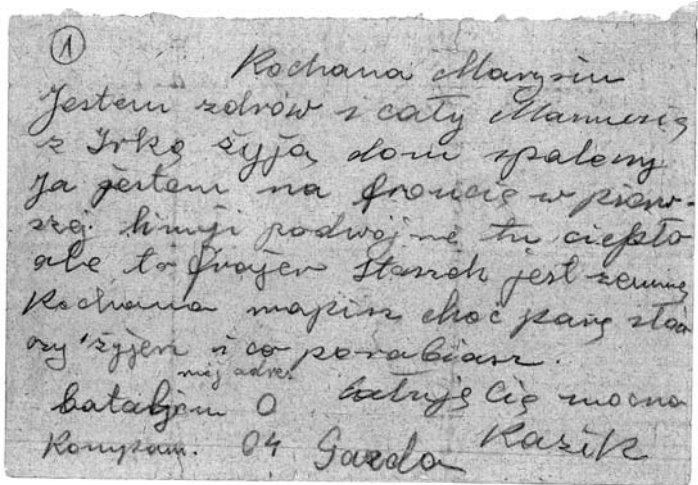 1
Kochana Marysiu
Jestem zdrów i cały Mamusią
z Irką żyją, dom spalony.
Ja jestem na froncie w pierw-
szej linji podwójne tu ciepło
ale to frajer Staszek jest zemną
Kochana napisz choć parę słów
czy żyjesz i co porabiasz.
mój adres
Całuję Cię mocno
bataljon O
Kompan. 04 Gazda Kazik